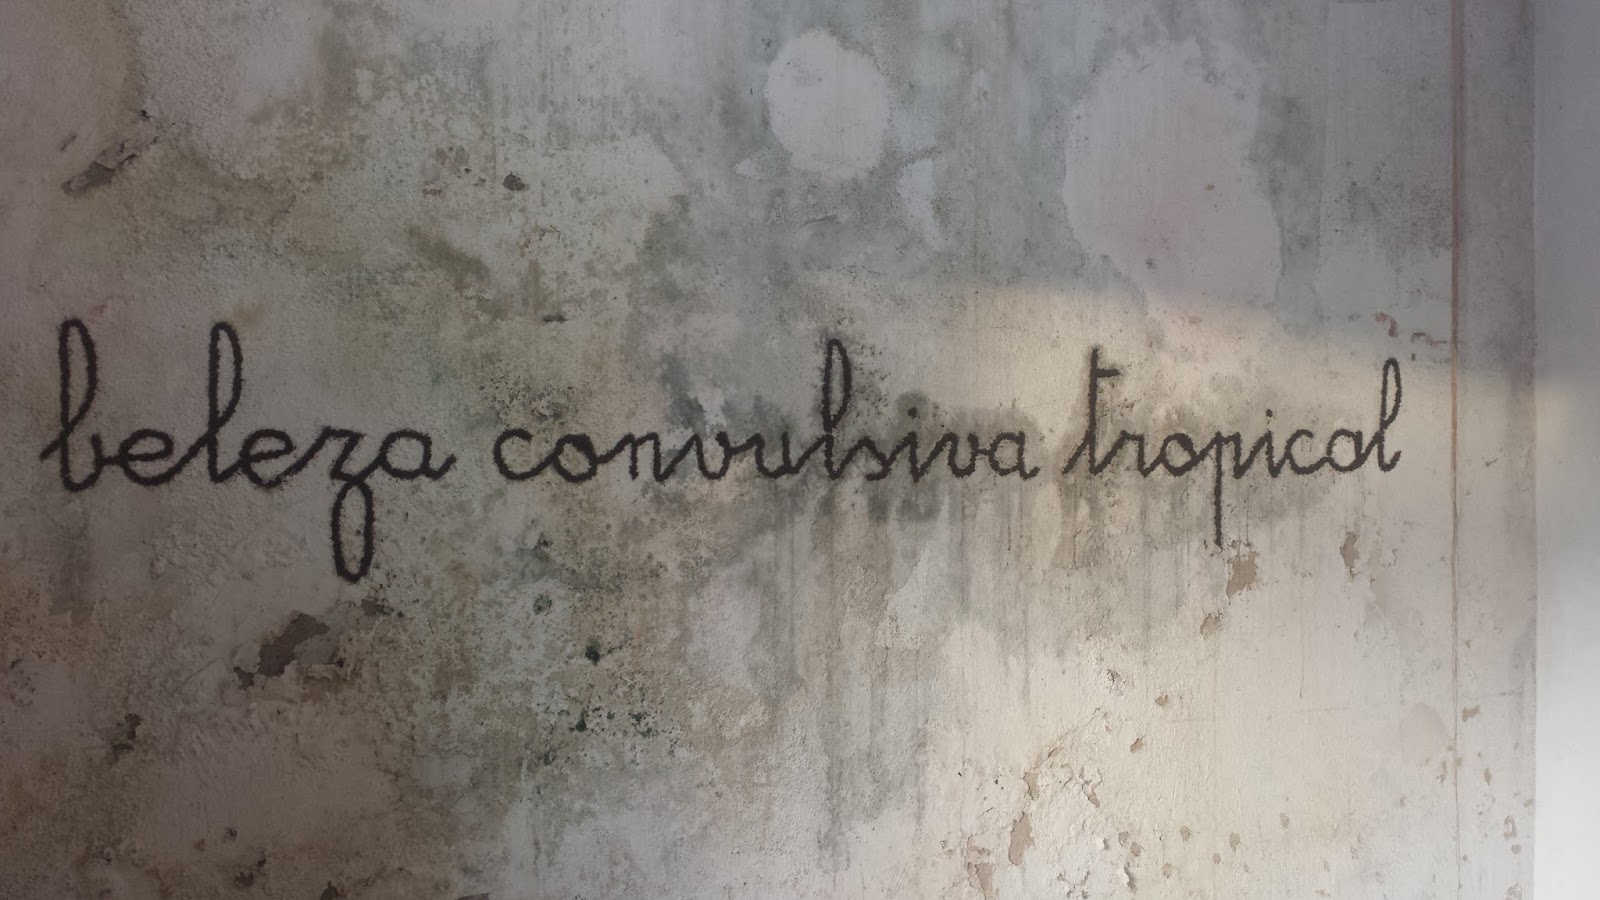 beleza convulsiva tropical